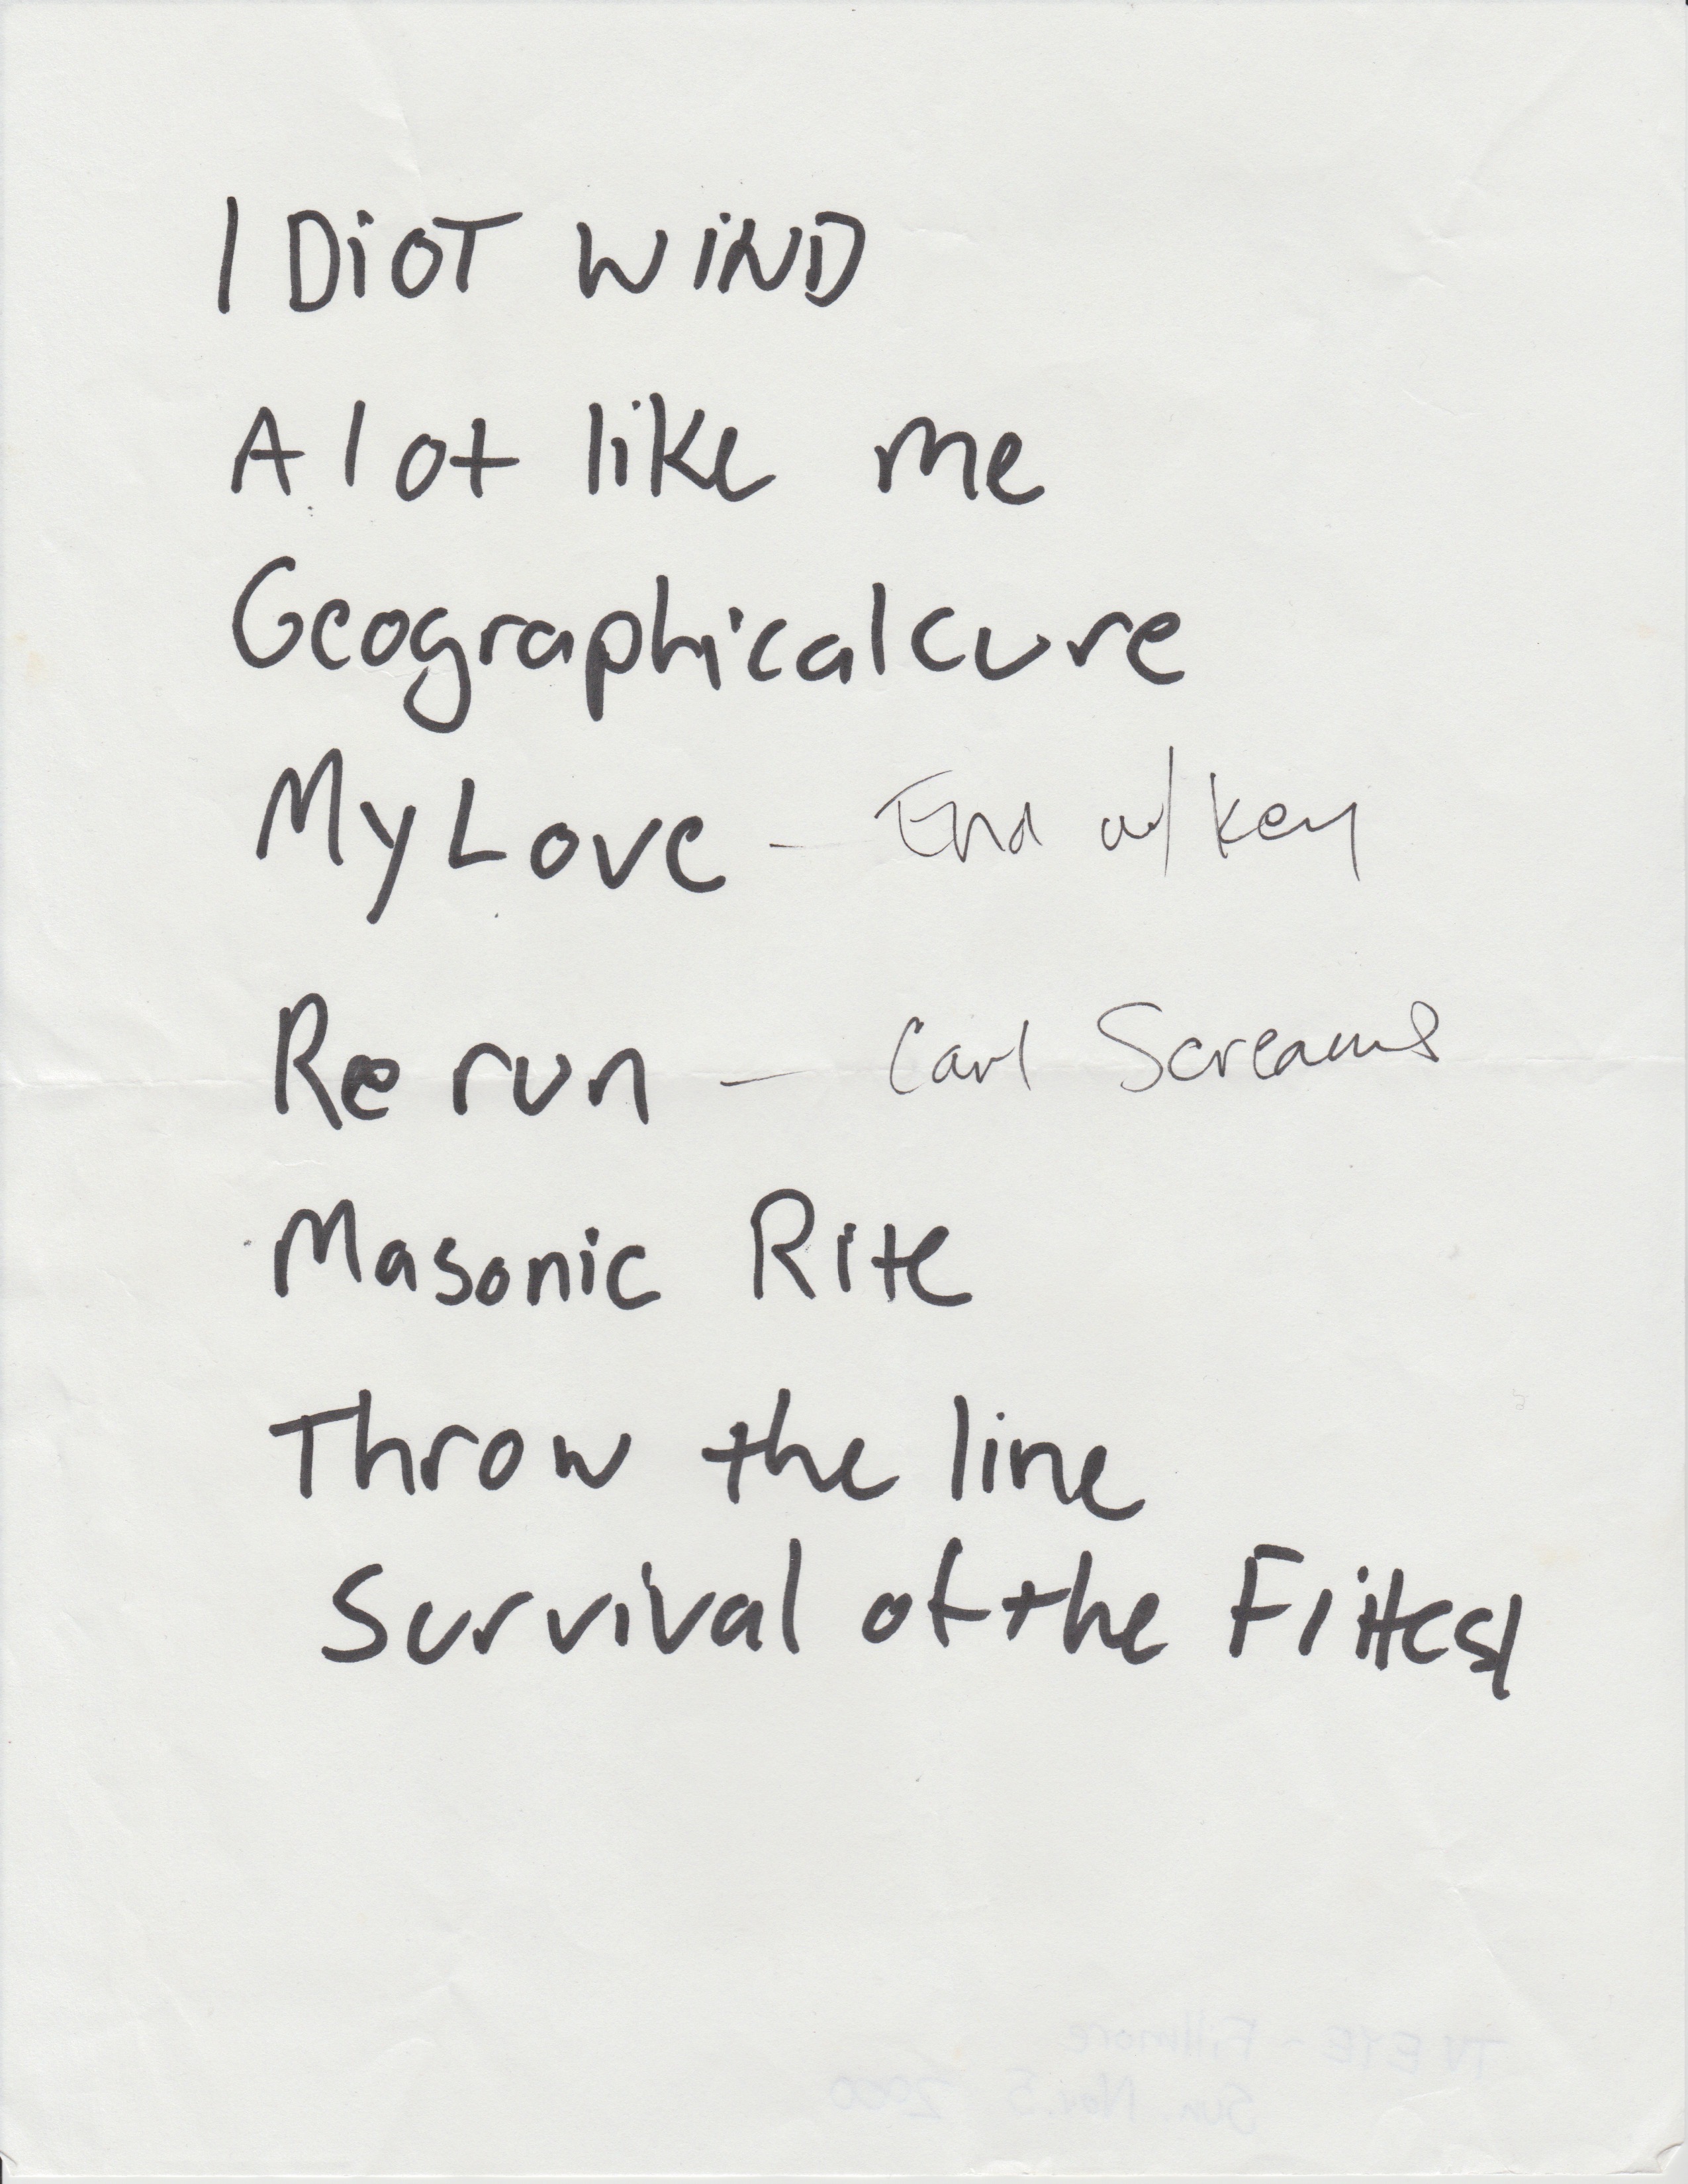 IDiOT WiND
A lot like me
Geographical cure
My Love - End w/ key
Re run - Carl Screams
Masonic Rite
Throw the line
Survival of the Fittest
TV EYE - Fillmore
Sun. Nov. 5 2000